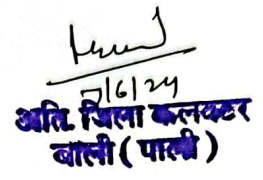 7/6/24
अति. जिला कलक्टर
बाली ( पाली )